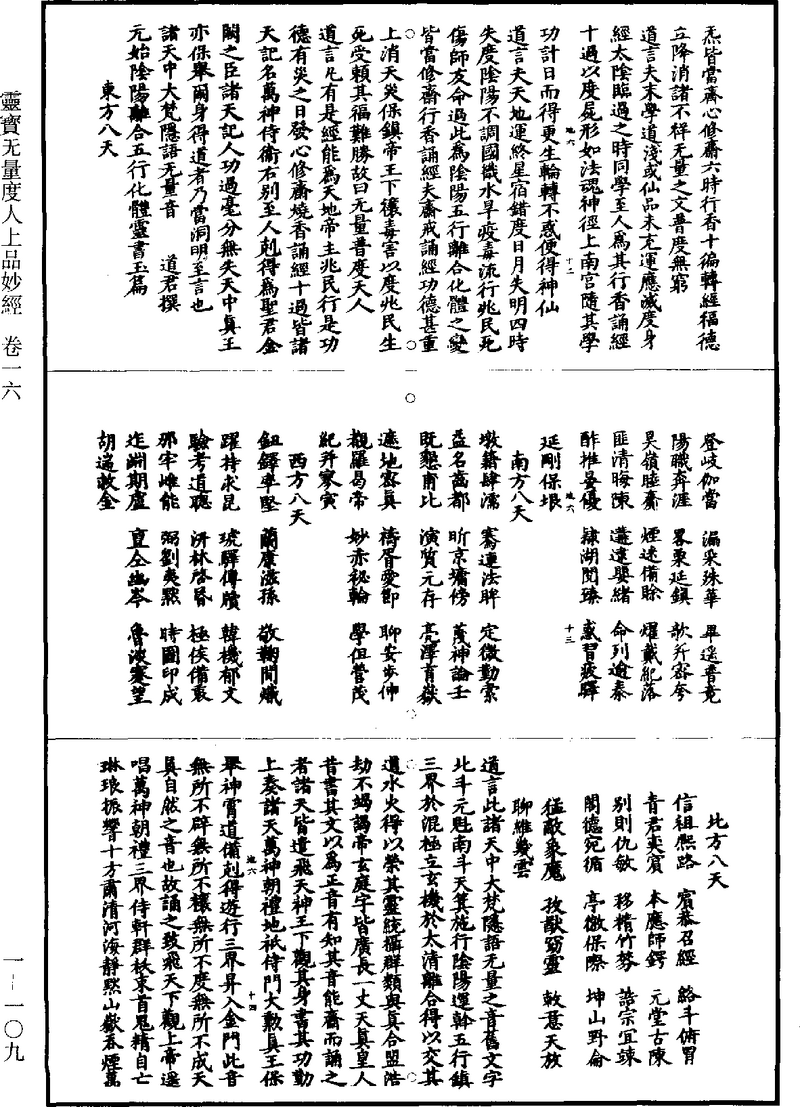 靈寶无量度人上品妙經　卷一六
一－一〇九
炁皆當齋心修齋六時行香十徧轉經福德
立降消諸不祥无量之文普度無窮
道言夫末學道淺或仙品未充運應滅度身
經太陰臨過之時同學至人爲其行香誦經
十過以度屍形如法魂神徑上南宫隨其學
功計日而得更生輪轉不惑便得神仙
道言夫天地運終星宿錯度日月失明四時
失度陰陽不調國禨水旱疫毒流行兆民死
傷師友命過此爲陰陽五行離合化體之變
皆當修齋行香誦經夫齋戒誦經功德甚重
上消天災保鎮帝王下禳毒害以度兆民生
死受賴其福難勝故曰无量普度天人
道言凡有是經能爲天地帝主兆民行是功
德有災之日發心修齋燒香誦經十過皆諸
天記名萬神侍衞右别至人剋得爲聖君金
闕之臣諸天記人功過毫分無失天中眞王
亦保舉爾身得道者乃當洞明至言也
諸天中大梵隱語无量音　　道君撰
元始陰陽離合五行化體靈書玉篇
東方八天
登岐伽當　漏采珠華　畢遥普竟
陽職奔涯　畧栗延鎮　歌斤容夸
昊嶺睦齎　煙迷備賒　燿戴紀落
匪清晦陳　遘違嬰緒　命列逾泰
酢推曼優　隸湖閲臻　惑習疲驛
延剛保垠
南方八天
墩籍肆濡　騫運法眸　定微勤索
益名啇都　昕京墉傍　茂神論壬
既懇甫比　演質元存　亮澤育嶽
遮地露真　禱胥愛即　聊安步仲
觀羅曷帝　妙赤祕輪　學但營茂
紀并寥寅
西方八天
鈕鐸率堅　蘭康滋孫　敬鞠間熾
躍持求昆　琥驛傳牘　韓機郁文
驗考道聰　汧林啓昏　極俟備裏
那牢雌能　弼劉夷黙　時圖印成
迮淵期廬　亶仝幽岑　魯波騫望
胡遥救金
北方八天
信祖熈路　賓恭召經　絡斗俯冐
青君奕賓　本應師鍔　元堂古陳
别則仇敏　移楷竹蓉　誥宗宜竦
閣德宛循　亭徼保際　坤山野侖
猛敵桑魔　孜猷窈靈　敕意天放
聊維幾雲
道言此諸天中大梵隱語无量之音舊文字
北斗元魁南斗天箕施行陰陽運斡五行鎮
三界於混極立玄機於太清離合得以交其
道水火得以榮其靈統攝群類與真合盟浩
劫不竭謁帝玄庭字皆廣長一丈天真皇人
昔書其文以爲正音有知其音能齋而誦之
者諸天皆遣飛天神王下觀其身書其功勤
上奏諸天萬神朝禮地祇侍門大勳眞王保
舉神霄道備剋得遊行三界昇入金門此音
無所不辟無所不禳無所不度無所不成天
眞自然之音也故誦之致飛天下觀上帝遥
唱萬神朝禮三界侍軒群妖束首鬼精自亡
琳琅振響十方肅清河海静黙山嶽吞煙萬